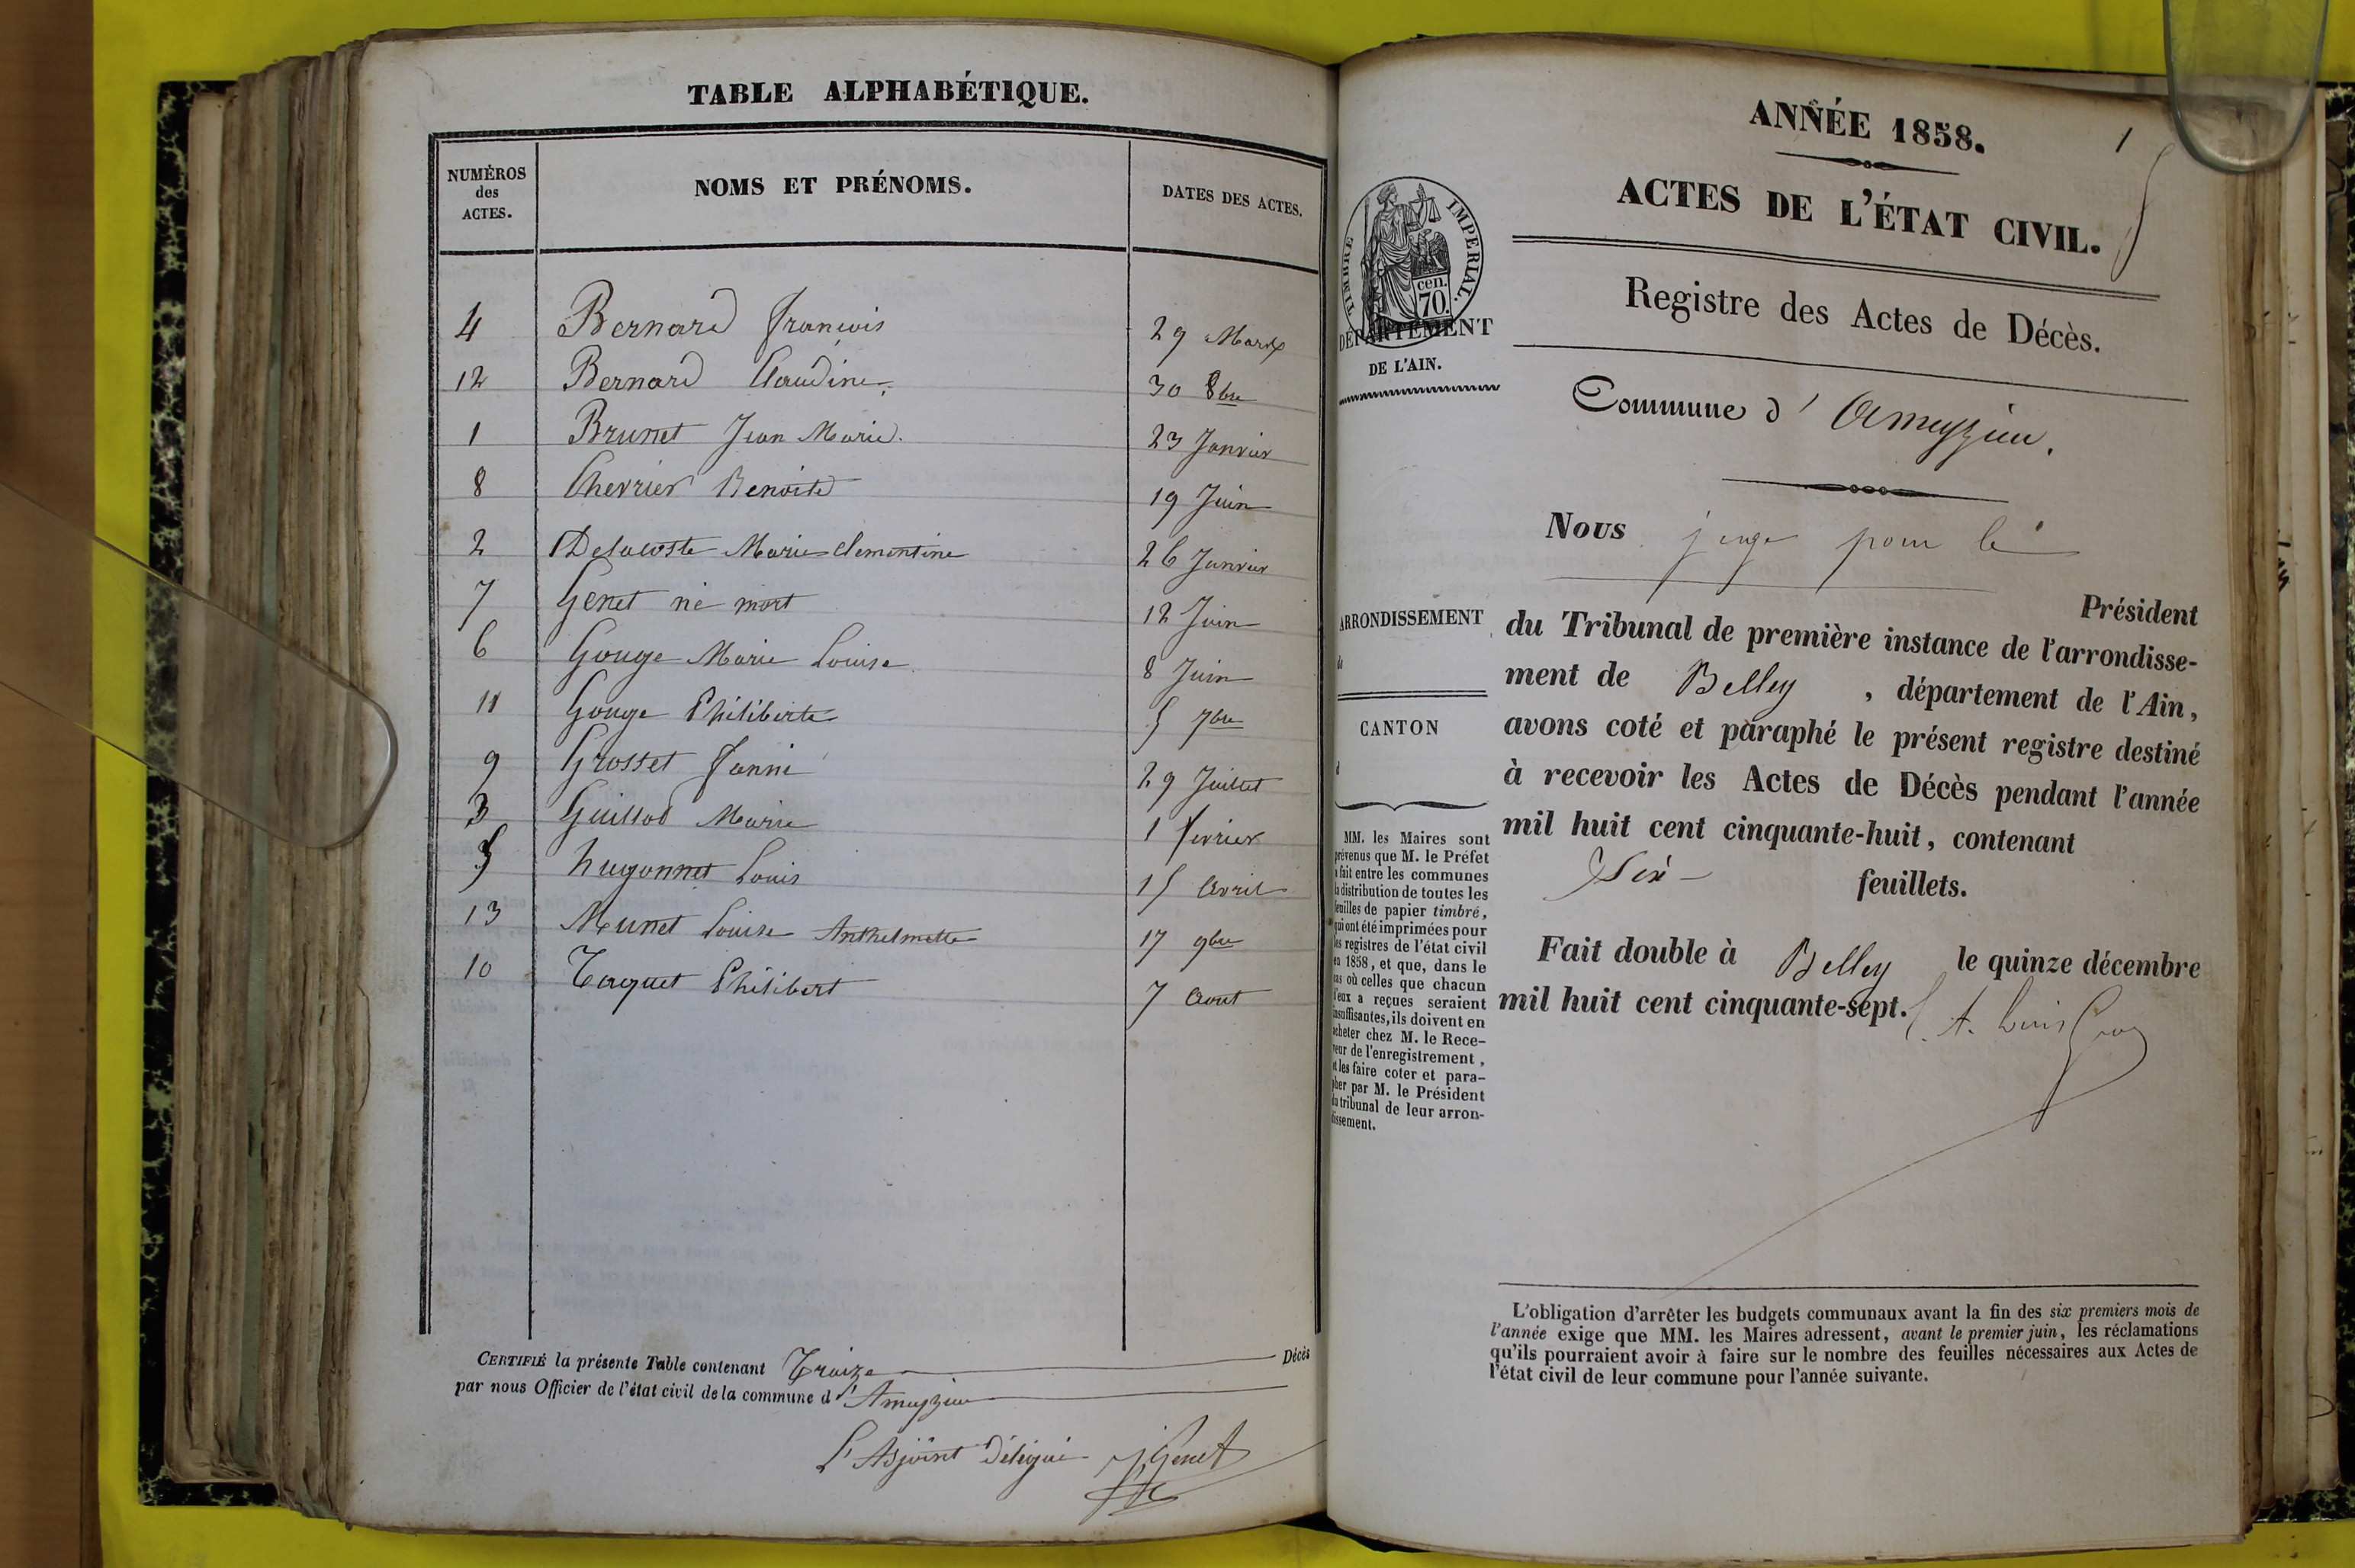 TABLE ALPHABÉTIQUE.
NUMÉROS
des
ACTES.
NOMS ET PRÉNOMS.
DATES DES ACTES.
4 Bernard François 29 Mars
12 Bernard Claudine 30 8bre
1 Brunet Jean Marie. 23 Janvier
8 Chevrier Benoite 19 Juin
2 Delacoste Marie Clementine 26 Janvier
7 Genet né mort 12 Juin
6 Gouge Marie Louise 8 Juin
11 Gouge Philiberte 5 7bre
9 Grosset Fanni 29 Juillet
3 Guillod Marie 1 fevrier
5 hugonnet Louis 15 Avril
13 Munet Louise Anthelmette 17 9bre
10 Taquet Philibert 7 Aout
CERTIFIÉ la présente Table contenant Treize Décès
par nous Officier de l'état civil de la commune d'Ameyzieu
L'Adjoint Délégué J. Genet
ANNÉE 1858.
1
ACTES DE L'ÉTAT CIVIL.
TIMBRE IMPERIAL.
cen.
70.
Registre des Actes de Décès.
DÉPARTEMENT
DE L'AIN.
Commune d'Ameyzieu.
Nous juge pour le
Président
ARRONDISSEMENT
de
CANTON
d
du Tribunal de première instance de l'arrondisse-
ment de Belley, département de l'Ain,
avons coté et paraphé le présent registre destiné
à recevoir les Actes de Décès pendant l'année
mil huit cent cinquante-huit, contenant
Six feuillets.
Fait double à Belley le quinze décembre
mil huit cent cinquante-sept.
MM. les Maires sont
prévenus que M. le Préfet
a fait entre les communes
la distribution de toutes les
feuilles de papier timbré,
qui ont été imprimées pour
les registres de l'état civil
en 1858, et que, dans le
cas où celles que chacun
d'eux a reçues seraient
insuffisantes, ils doivent en
acheter chez M. le Rece-
veur de l'enregistrement,
et les faire coter et para-
pher par M. le Président
du tribunal de leur arron-
dissement.
L'obligation d'arrêter les budgets communaux avant la fin des six premiers mois de
l'année exige que MM. les Maires adressent, avant le premier juin, les réclamations
qu'ils pourraient avoir à faire sur le nombre des feuilles nécessaires aux Actes de
l'état civil de leur commune pour l'année suivante.